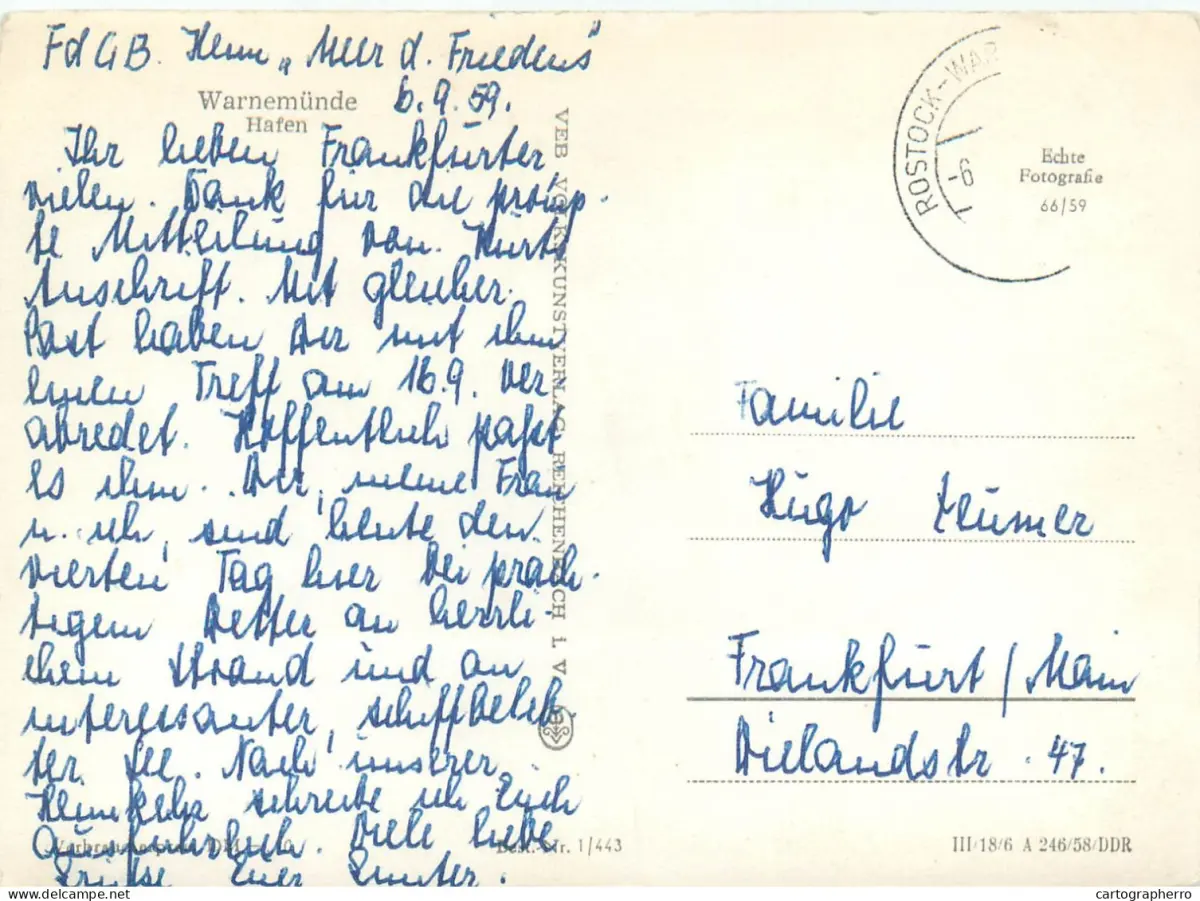 FdGB. Heim „Meer d. Friedens"
Warnemünde 6.9.59.
Hafen
Ihr lieben Frankfurter
vielen. Dank für die promp-
te Mitteilung von. Kurts
Anschrift. Mit gleicher.
Post haben Wir mit ihm
einen Treff am 16.9. ver
abredet. Hoffentlich paßt
Es ihm. Wir, meine Frau
u. ich, sind heute den.
vierten Tag hier bei präch-
tigem Wetter an herrli-
chem Strand und an
interessanter, schiffbeleb-
ter. See. Nach unserer
Heimkehr schreibe ich Euch
Ausführlich. Viele liebe
Grüße Euer
VEB VOLKSKUNSTVERLAG REICHENBACH I. V.
Best.-Nr. 1/443
ROSTOCK-WAR
-6
Echte
Fotografie
66/59
Familie
Hugo
Frankfurt/Main
Wielandstr. 47.
III/18/6 A 246/58/DDR
cartographerro